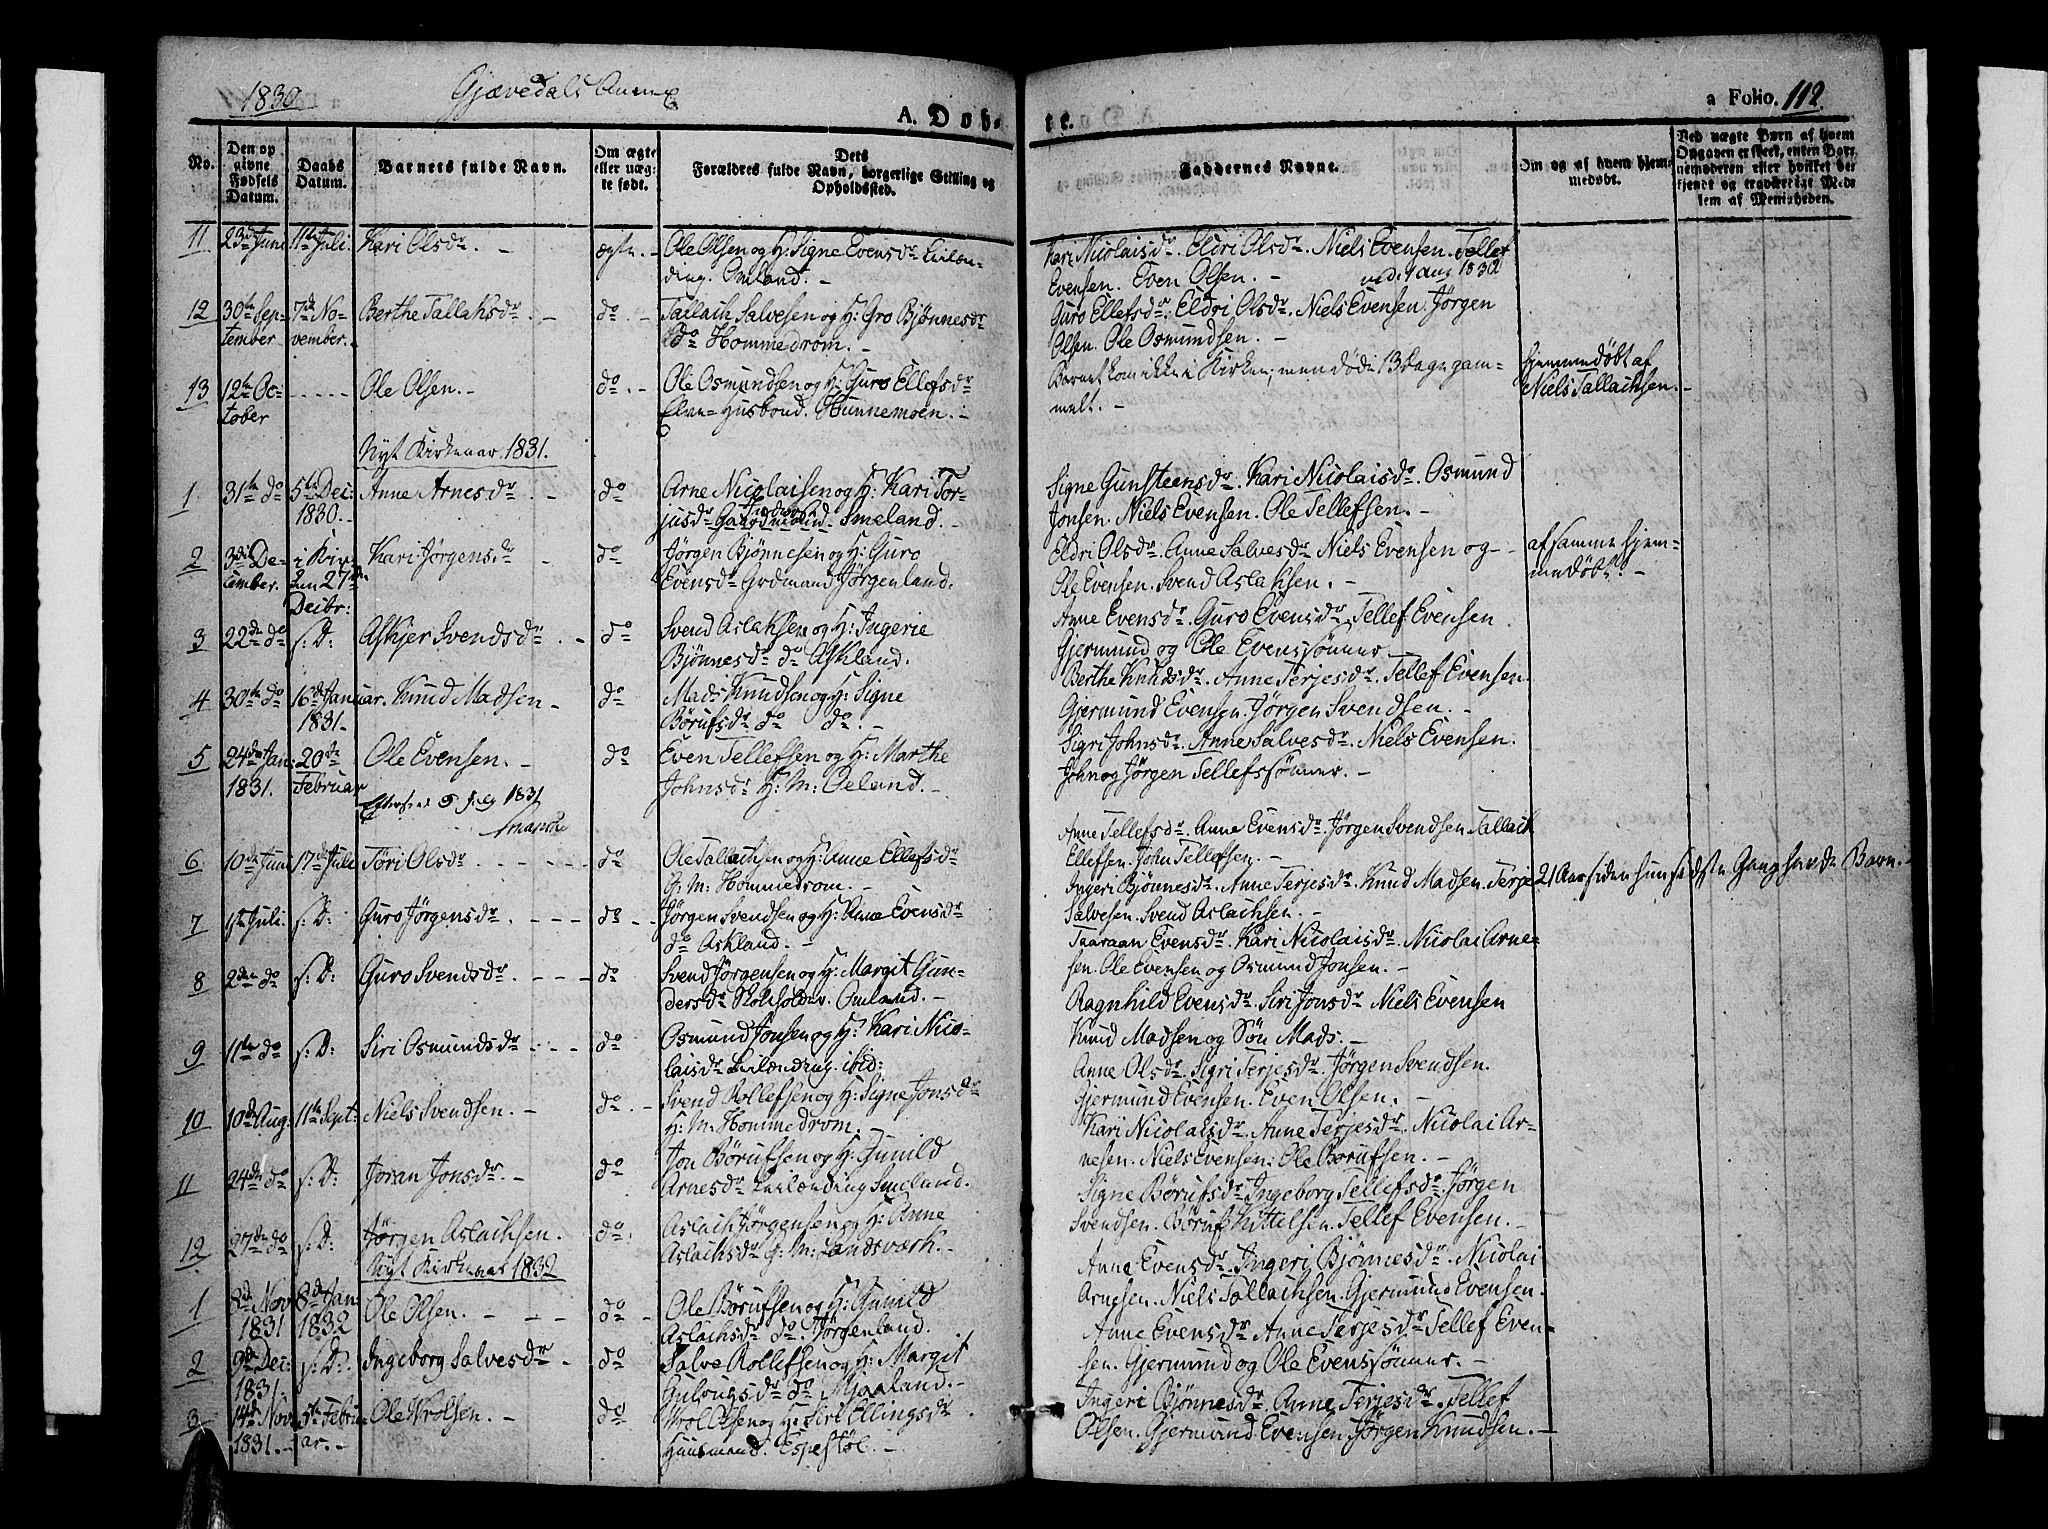 1830 Gjævedals Annex
A. Døb-
te.
a Folio. 112.
No.
Den op
givne
Fødsels
Datum.
Daabs
Datum.
Barnets fulde Navn.
Om ægte
eller uæg-
te født.
Dets
Forældres fulde Navn, borgerlige Stilling og
Opholdssted.
Faddernes Navne.
Om og af hvem hjem-
medøbt.
Ved uægte Børn af hvem
Opgaven er skeet, enten Bar-
nemoderen eller hvilket be-
kjendt og troværdigt Med-
lem af Menigheden.
11 23d Juni 11te Juli Kari Olsdr. - ægte - Ole Olsen og H: Signe Evensdr Leilæn-
ding. Omland. -
Kari Nicolaisdr. Eldri Olsdr. Niels Evensen. Tellef
Evensen. Even Olsen. -
12 30te Sep-
tember 7de No-
vember. Berthe Tallaksdr. - do - Tallach Salvesen og H: Gro Bjønnesdr
do Hommedrom. -
Guro Ellefsdr. Eldri Olsdr. Niels Evensen. Jørgen
Olsen. Ole Osmundsen. -
13 12te Oc-
tober - - - - Ole Olsen. - do - Ole Osmundsen og H: Guro Ellefsdr
Husbond. Hunnemoen. -
Barnet kom ikke i Kirken, men døde 13 Dage gam-
melt. -
hjemmedøbt af
Niels Tallachsen. -
Nyt Kirkeaar. 1831.
1 31te do 5te Dec:
1830. - Anne Arnesdr. - do Arne Nicolaisen og H: Kari Tor-
jusdr Smeland. -
Signe Gunsteensdr. Kari Nicolaisdr. Osmund
Jonsen. Niels Evensen. Ole Tellefsen. -
2 3die De-
cember. i Kir-
ken 27de
Decbr: Kari Jørgensdr - do Jørgen Bjønnesen og H: Guro
Evensdr Jørgenland.
Eldri Olsdr. Anne Salvesdr. Niels Evensen og -
Ole Evensen. Svend Aslaksen. -
af samme hjem-
medøbt. -
3 22de do s: D: Askjer Svendsdr. - do Svend Aslaksen og H: Ingerie
Bjønnesdr do Askland.
Anne Evensdr. Guro Evensdr. Tellef Evensen.
Gjermund og Ole Evenssønner -
4 30te do 16de Januar.
1831. - Knud Madsen - do Mads Knudsen og H: Signe
Børufsdr do do. -
Berthe Knudsdr. Anne Terjesdr. Tellef Evensen.
Gjermund Evensen. Jørgen Svendsen. -
5 24de Jan:
1831. 20de
Februar Ole Evensen. - do Even Tellefsen og H: Marthe
Johnsdr H: M: Oeland. -
Sigri Johnsdr. Anne Salvesdr. Niels Evensen.
John og Jørgen Tellefssønner. -
Efterseet 5 July 1831
6 10de Juni 17de Juli Tøri Olsdr. - - - do Ole Tallachsen og H: Anne Ellefsdr
G: M: Hommedrom. -
Anne Tellefsdr. Anne Evensdr. Jørgen Svendsen. Tallach
Ellefsen. John Tellefsen. -
7 1te Juli. s: D: Guro Jørgensdr. - - - do - Jørgen Svendsen og H: Anne Evensdr
do Askland. -
Ingeri Bjønnesdr. Anne Terjesdr. Knud Madsen. Terje
Salvesen. Svend Aslachsen. -
21 Aar siden hun sidste Gang havde Barn. -
8 2den do s: D: Guro Svendsdr. - - - do Svend Jørgensen og H: Margit Gun-
dersdr Omland. -
Taaraan Evensdr. Kari Nicolaisdr. Nicolai Arne-
sen. Ole Evensen og Osmund Jonsen. -
9 11te do s: D: Siri Osmundsdr - - - do Osmund Jonsen og H: Kari Nico-
laisdr Leilænding. ibid:
Ragnhild Evensdr. Siri Jonsdr. Niels Evensen
Knud Madsen og Søn Mads. -
10 10de Aug: 11te Sept: Niels Svendsen. - do. - Svend Rollefsen og H: Signe Jonsdr
H: M: Hommedrom. -
Anne Olsdr. Sigri Terjesdr. Jørgen Svendsen.
Gjermund Evensen. Even Olsen. -
11 24de do s: D: Joran Jonsdr. - do Jon Børufsen og H: Gunild
Arnesdr Leilænding Smeland.
Kari Nicolaisdr. Anne Terjesdr. Nicolai Ar-
nesen. Niels Evensen. Ole Børufsen. -
12 27de do s: D: Jørgen Aslachsen. do. Aslach Jørgensen og H: Anne
Aslachsdr G: M: Landsværk. -
Signe Børufsdr. Ingeborg Tellefsdr. Jørgen
Svendsen. Børuf Kittelsen. Tellef Evensen. -
Nyt Kirkeaar 1832
1 8de Nov
1831 8de Jan:
1832 Ole Olsen. - - do - Ole Børufsen og H: Gunild
Aslachsdr do Jørgenland.
Anne Evensdr. Ingeri Bjønnesdr. Nicolai
Arnesen. Niels Tallachsen. Gjermund Evensen.
2 9de Dec:
1831. s: D: Ingeborg Salvesdr. do Salve Rollefsen og H: Margit
do Mjaaland. -
Anne Evensdr. Anne Terjesdr. Tellef Even-
sen. Gjermund og Ole Evenssønner. -
3 14de Nov
1831. - 5te Febru-
ar. - Ole Wrolsen. - do Wrol Olsen og H: Siri Ellingsdr
Huusmand. Espestøl. -
Ingeri Bjønnesdr. Anne Terjesdr. Tellef
Olsen. Gjermund Evensen. Jørgen Knudsen. -